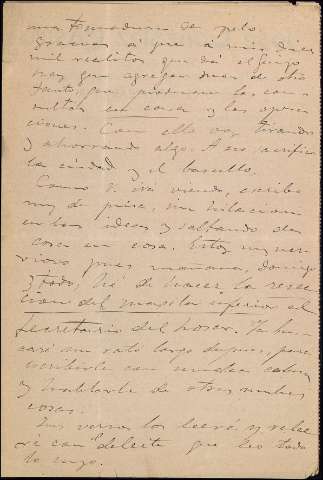 una tomadura de pelo.
Gracias á que á mis diez
mil realitos que dá el
hay que agregar de otro
tanto, que producen las con-
sultas en casa y las opera-
ciones. Con ello voy tirando
y ahorrando algo. A eso
la ciudad y el bolsillo.
Como V. irá viendo, escribo
muy de prisa, sin hilacion
en las ideas y saltando de
cosa en cosa. Estoy muy ner-
vioso pues mañana, domingo
y todo, hé de hacer la resec-
cion del maxilar inferior al
Secretario del
un rato largo despues, para
escribirle con mucha calma
y hablarle de otras muchas
cosas.
Sus versos los leeré y relee-
ré con el deleite que leo todo
lo suyo.